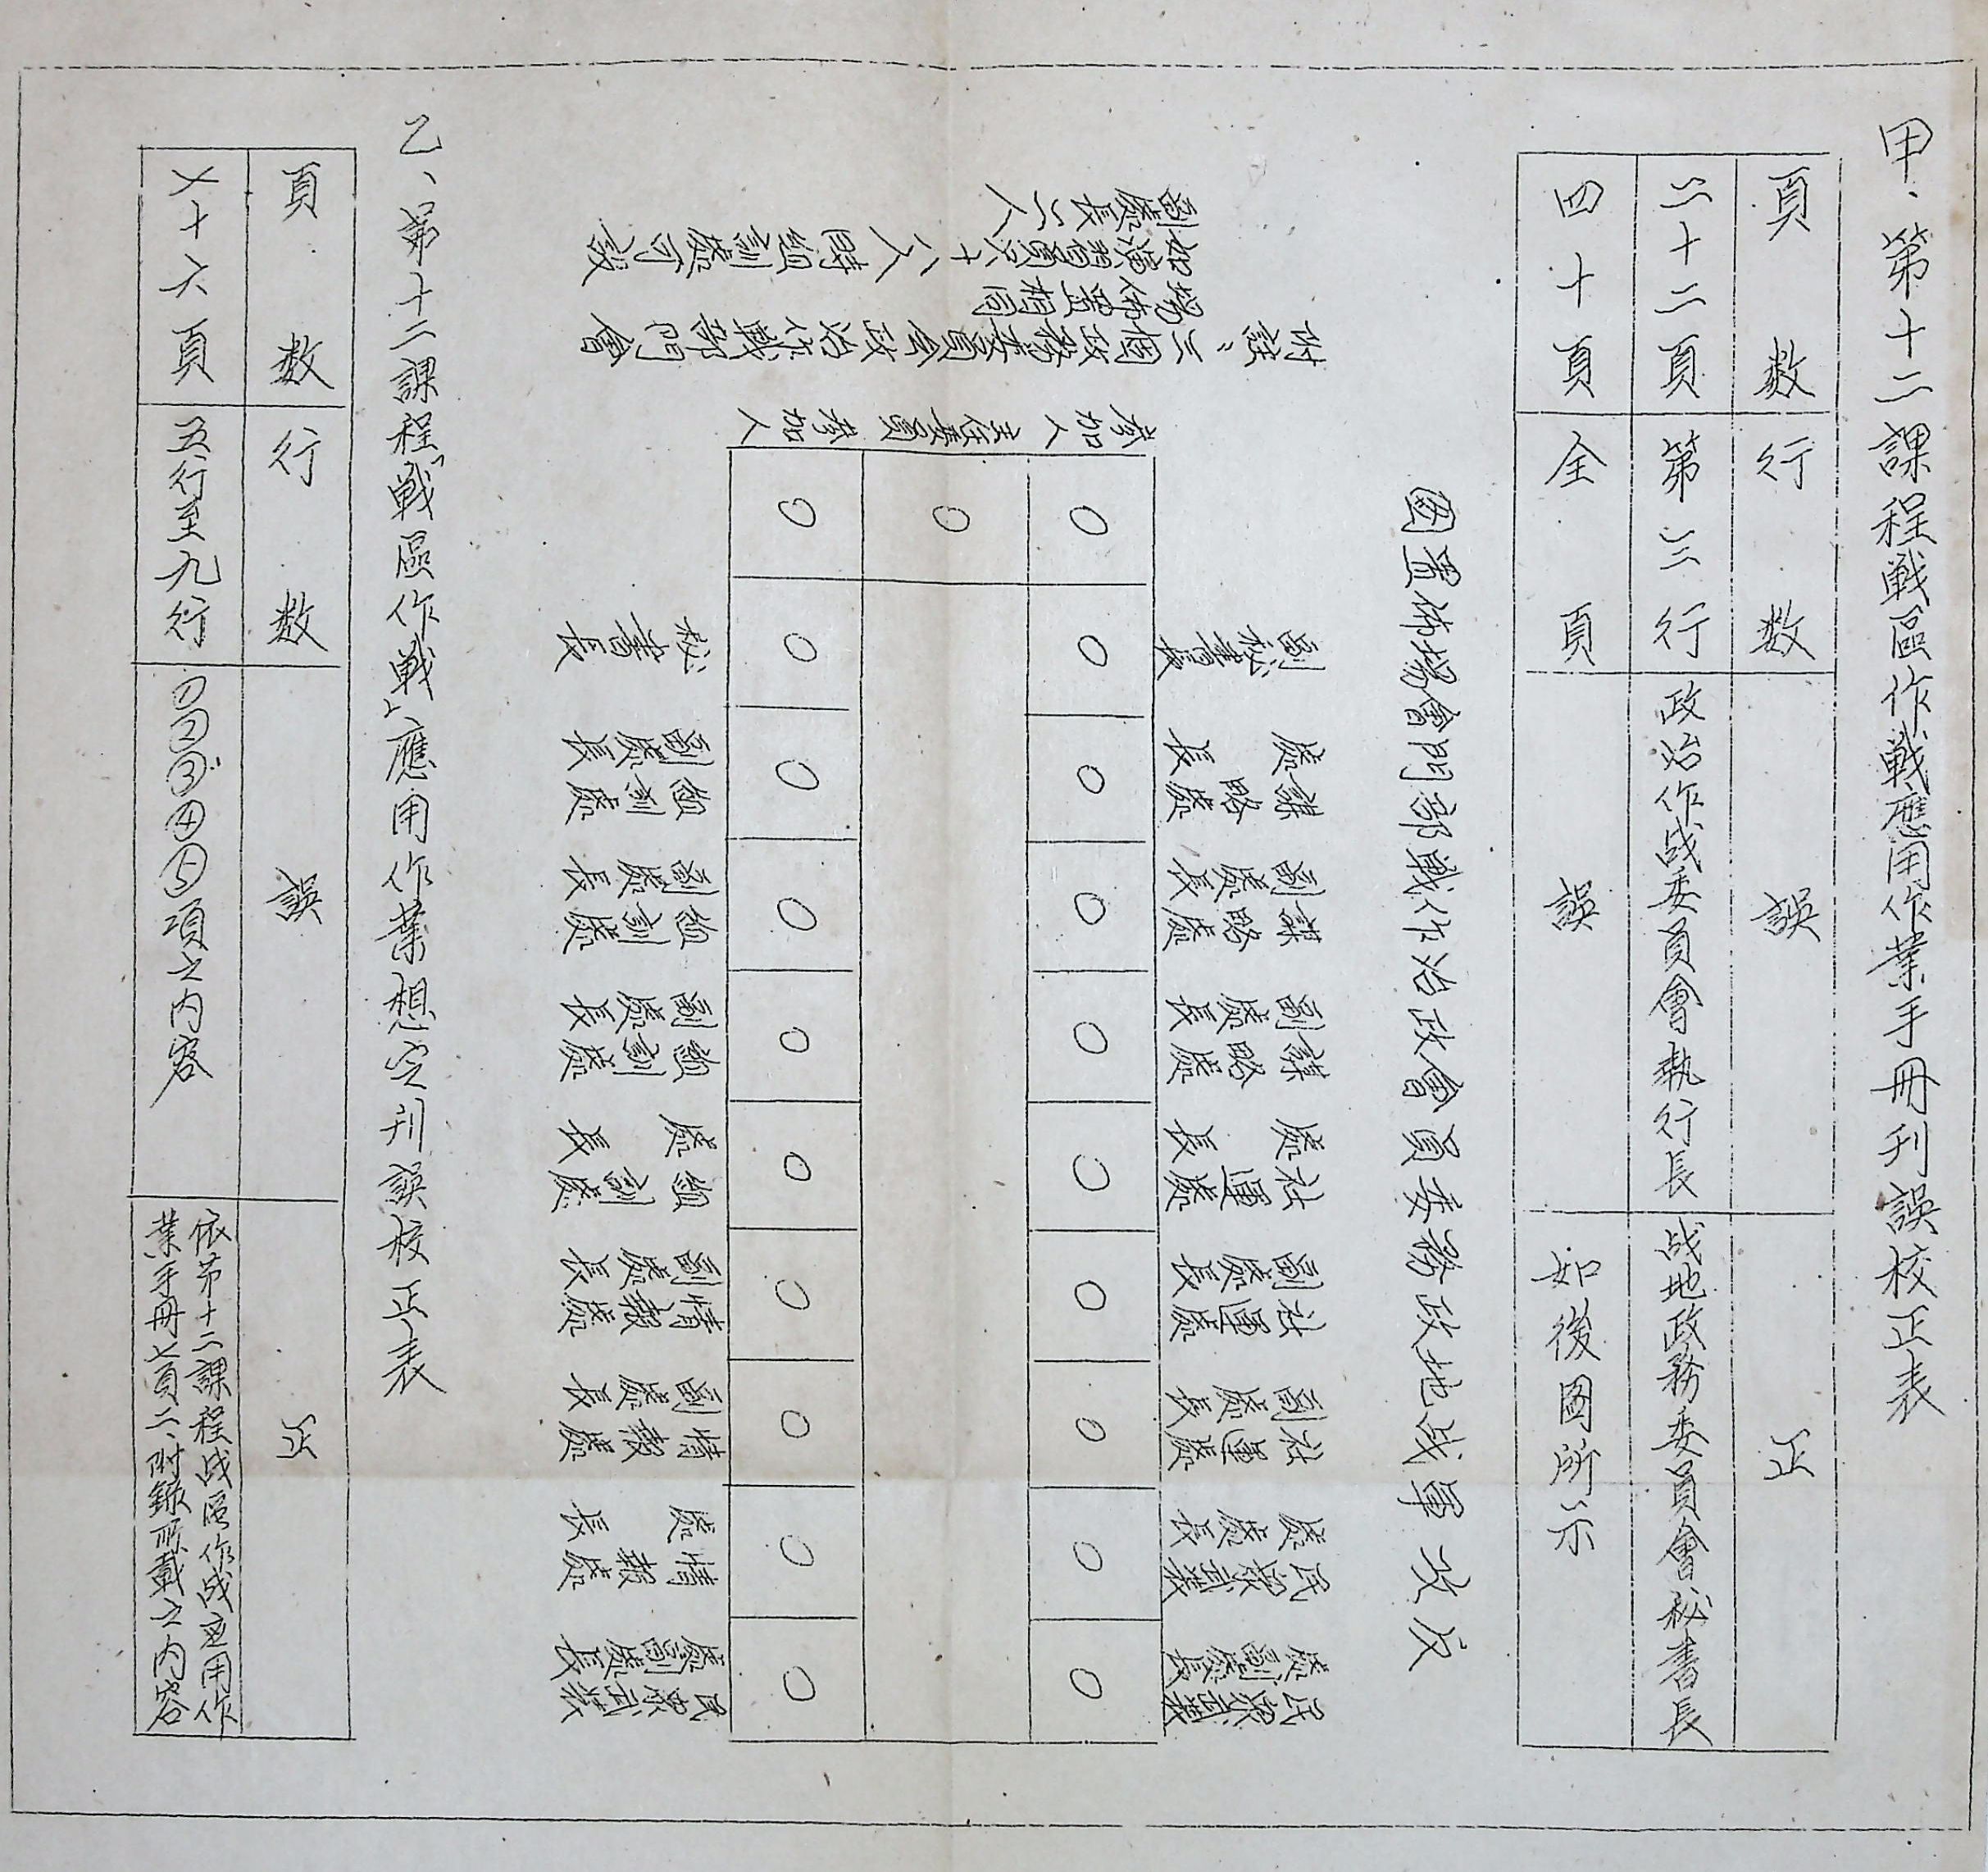 甲、第十二課程戰區作戰應用作業手冊刊誤校正表
頁數
行數
誤
正
三十二頁
第三行
政治作战委員會執行長
战地政務委員會秘書長
四十頁
全頁
誤
如後圖所示
反攻軍战地政務委員會政治作戰部門會場佈置圖
參加人
主任委員
參加人
副秘書長
謀略處
處長
謀略處
副處長
謀略處
副處長
社運處
處長
社運處
副處長
社運處
副處長
民眾武裝
處處長
民眾武裝
處副處長
秘書長
組訓處
副處長
組訓處
副處長
組訓處
副處長
組訓處
處長
情報處
副處長
情報處
副處長
情報處
處長
民眾武裝
處副處長
附註：三個政務委員會政治作戰部門會
場佈置相同
如演習員只十八人時組訓處可設
副處長二人
乙、第十二課程「戰區作戰」應用作業想定刊誤校正表
頁數
行數
誤
正
七十六頁
五行至九行
①②③④⑤項之內容
依第十二課程战区作战应用作
業手冊七頁二、附錄所載之內容